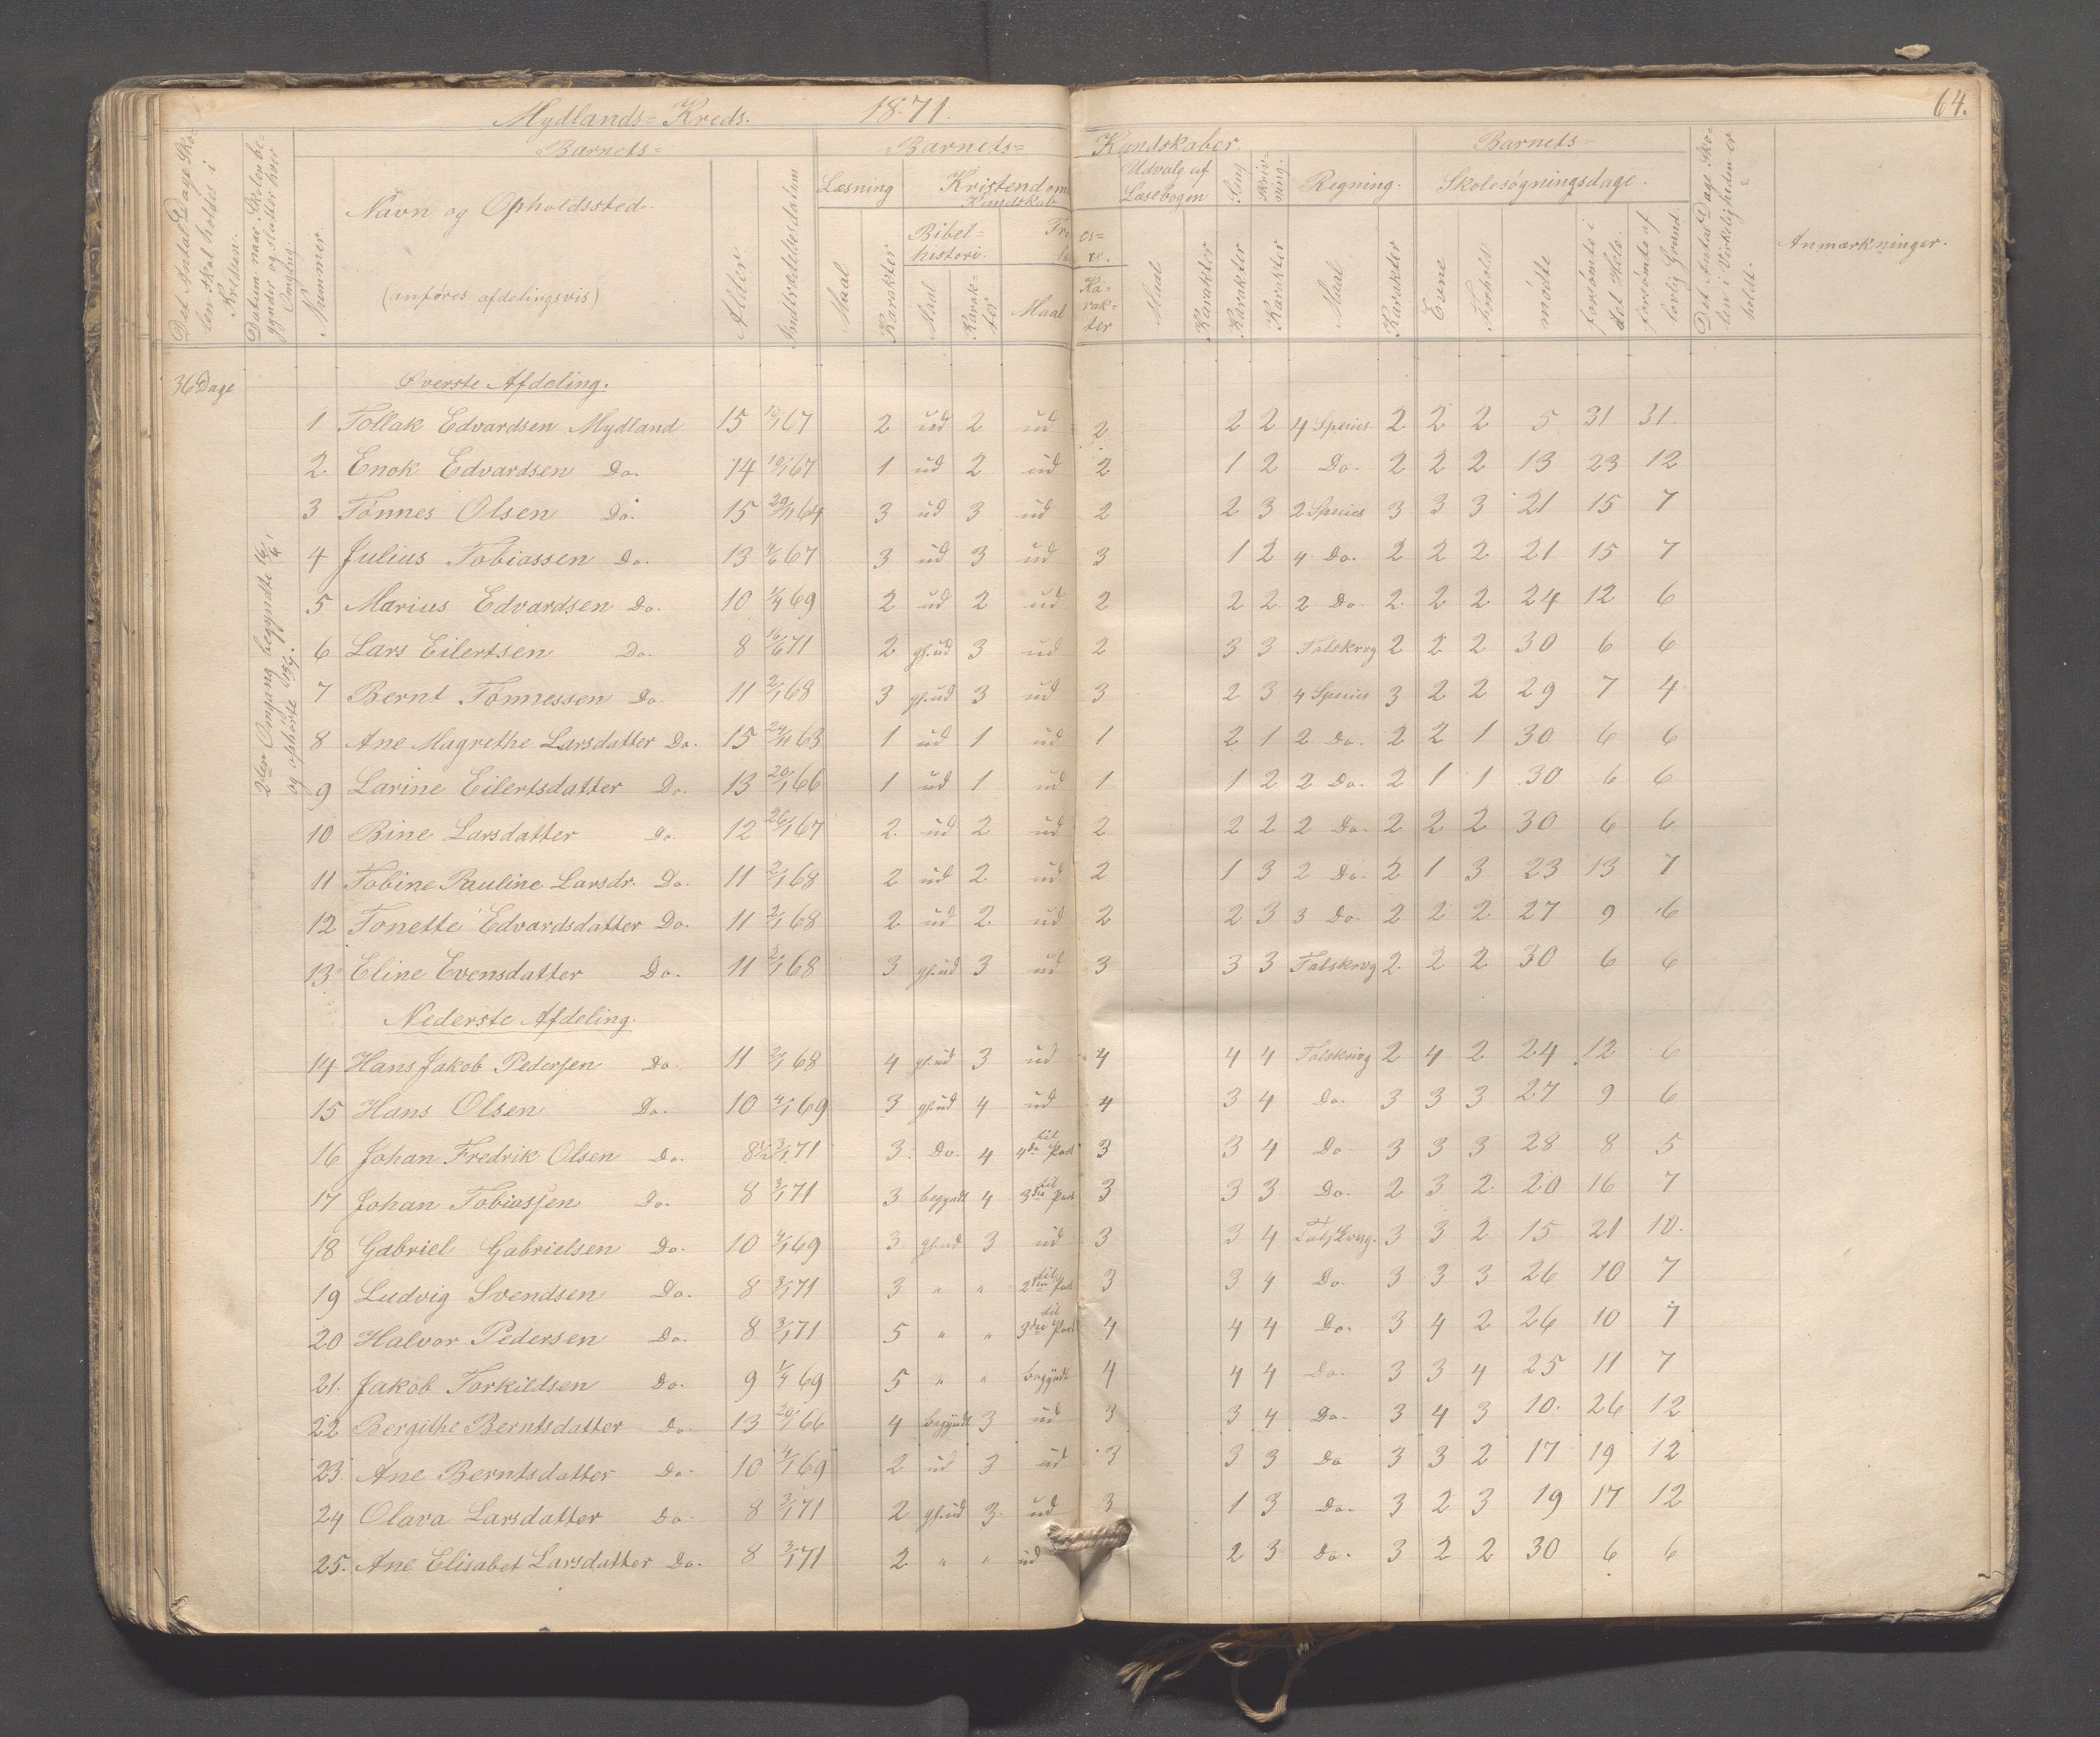 Mydlands= Kreds. 1871. 64.
Det Antal Dage Sko=
len skal holdes i
Kredsen.
Datum naar Skolen be=
gynder og slutter hver
Omgang.
Nummer.
Barnets=
Navn og Opholdssted.
(anføres afdelingsvis)
Alder
Indtrædelsesdatum
Barnets= Kundskaber.
Læsning
Maal
Karakter
Kristendoms
Kundskab
Bibel=
historie.
Maal
Karak=
ter
Maal
Ka=
rak=
ter
Udvalg af
Læsebogen
Maal
Karakter
Sang
Karakter
Skriv=
ning.
Karakter
Regning.
Maal
Karakter
Barnets
Skolesøgningsdage.
Evne
Forhold
mødte
forsømte i
det Hele.
forsømte af
lovlig Grund.
Det Antal Dage Sko=
len i Virkeligheden er
holdt.
Anmærkninger.
36 Dage
2den Omgang begyndte 16/6
og ophørte 15/7.
Øverste Afdeling.
1 Tollak Edvardsen Mydland 15 10/1 67 2 ud 2 ud 2 2 2 4 Species 2 2 2 5 31 31.
2. Enok Edvardsen Do. 14 10/1 67 1 ud 2 ud 2 1 2 Do. 2 2 2 13 23 12
3 Tønnes Olsen Do. 15 29/11 64 3 ud 3 ud 2 2 3 2 Species 3 3 3 21 15 7
4 Julius Tobiassen Do. 13 4/6 67 3 ud 3 ud 3 1 2 4 Do. 2 2 2 21 15 7
5 Marius Edvardsen Do. 10 1/4 69 2 ud 2 ud 2 2 2 2 Do. 2 2 2 24 12 6
6 Lars Eilertsen Do. 8 16/6 71 2 gf.ud 3 ud 2 3 3 Talskrvg 2 2 2 30 6 6
7 Bernt Tønnessen Do. 11 2/1 68 3 gf.ud 3 ud 3 2 3 4 Species 3 2 2 29 7 4
8 Ane Magrethe Larsdatter Do. 15 24/11 63 1 ud 1 ud 1 2 1 2 Do. 2 2 1 30 6 6
9 Larine Eilertsdatter Do. 13 20/1 66 1 ud 1 ud 1 1 2 2 Do. 2 1 1 30 6 6
10 Bine Larsdatter Do. 12 26/1 67 2. ud 2 ud 2 2 2 2 Do. 2 2 2 30 6 6
11 Tobine Pauline Larsdr. Do. 11 2/1 68 2 ud 2 ud 2 1 3 2 Do. 2 1 3 23 13 7
12 Tonette Edvardsdatter Do. 11 2/1 68 2 ud 2. ud 2 2 3 3 Do. 2 2 2 27 9 6
13 Eline Evensdatter Do. 11 2/1 68 3 gf.ud 3 ud 3 3 3 Talskrvg 2. 2 2 30 6 6
Nederste Afdeling.
14 Hans Jakob Pedersen Do. 11 2/1 68 4 gf.ud 3 ud 4 4 4 Talskrivg 2 4 2 24 12 6
15 Hans Olsen Do. 10 4/1 69 3 gf.ud 4 ud 4 3 4 Do. 3 3 3 27 9 6
16 Johan Fredrik Olsen Do. 8½ 3/1 71 3. Do. 4 til 4de Part 3 3 4 Do 3 3 3 28 8 5
17 Johan Tobiassen Do. 8 3/1 71 3 begyndt 4 til 3die Part 3 3 3 Do. 2 3 2 20 16 7
18 Gabriel Gabrielsen Do. 10 4/1 69 3 gf.ud 3 ud 3 3 4 3 3 2 15 21 10.
19 Ludvig Svendsen Do. 8 3/1 71 3 " " til 2den Part 3 3 4 Do. 3 3 3 26 10 7
20 Halvor Pedersen Do. 8 3/1 71 5 " " til 3die Part 4 4 4 Do. 3 4 2 26 10 7
21. Jakob Torkildsen Do. 9 1/4 69 5 " " begyndt 4 4 4 Do. 3 3 4 25 11 7
22 Bergithe Berntsdatter Do. 13 20/1 66 4 begyndt 3 ud 3 3 4 Do. 3 4 3 10. 26 12
23. Ane Berntsdatter Do. 10 4/1 69 2 ud 3 ud 3 3 3 Do 3 3 2 17 19 12
24 Olava Larsdatter Do. 8 3/1 71 2 gf.ud 3. ud 3 1 3 Do. 3 2 3 19 17 12
25. Ane Elisabet Larsdatter Do. 8 3/1 71 2 " " ud 2 3 Do. 3 2 2 30 6 6